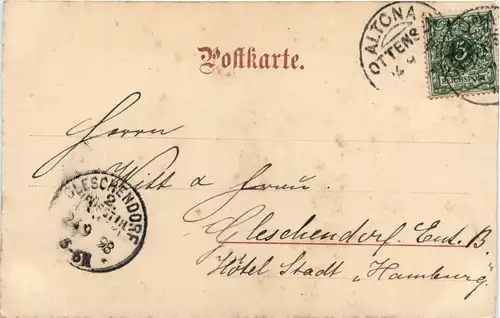 ALTONA
OTTENS
5
Postkarte.
Herrn
Witt & Frau.
Gleschendorf. Eut. B.
Hôtel Stadt „Hamburg"
GLESCHENDORF
24 9 98
5-6N
*